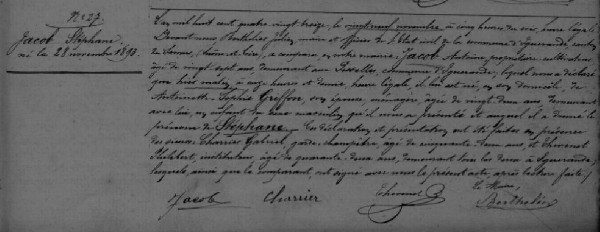 N° 27
Jacob Stéphane
né le 28 novembre 1893.
L'an mil huit cent quatre vingt treize, le vingt neuf novembre à cinq heures du soir, heure légale
Devant nous Berthelier maire et officier de l'état civil de la commune d'Iguerande, canton
de Semur, Saône et Loire, a comparu, en notre mairie, Jacob Antoine, propriétaire cultivateur
âgé de vingt sept ans demeurant aux commune d'Iguerande, lequel nous a déclaré
que hier mardi, à onze heures et demie heure légale, il lui est né, en son domicile, de
Antoinette Sophie Griffon, son épouse, ménagère, âgée de vingt deux ans demeurant
avec lui, un enfant du sexe masculin qu'il nous a présenté et auquel il a donné le
prénom de Stéphane. Les déclaration et présentation ont été faites en présence
des sieurs Charrier Gabriel garde champêtre, âgé de cinquante deux ans, et
Philibert, instituteur, âgé de quarante deux ans, demeurant tous les deux à Iguerande,
lesquels, ainsi que le comparant, ont signé avec nous le présent acte, après lecture faite./.
Jacob Charrier
Le Maire,
Berthelier